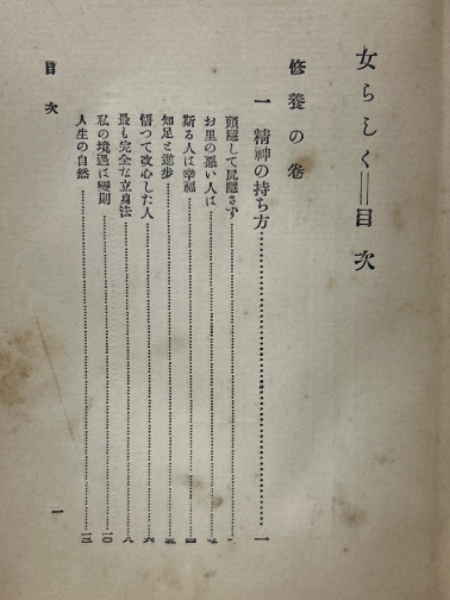 女らしく＝目次
修養の巻
一 精神の持ち方……一
頭隠して尻隠さず……
お里の悪い人は……
斯る人は幸福……四
知足と進歩……五
悟つて改心した人……六
最も完全な立身法……八
私の境遇は變則……一〇
人生の自然……一三
目次
一